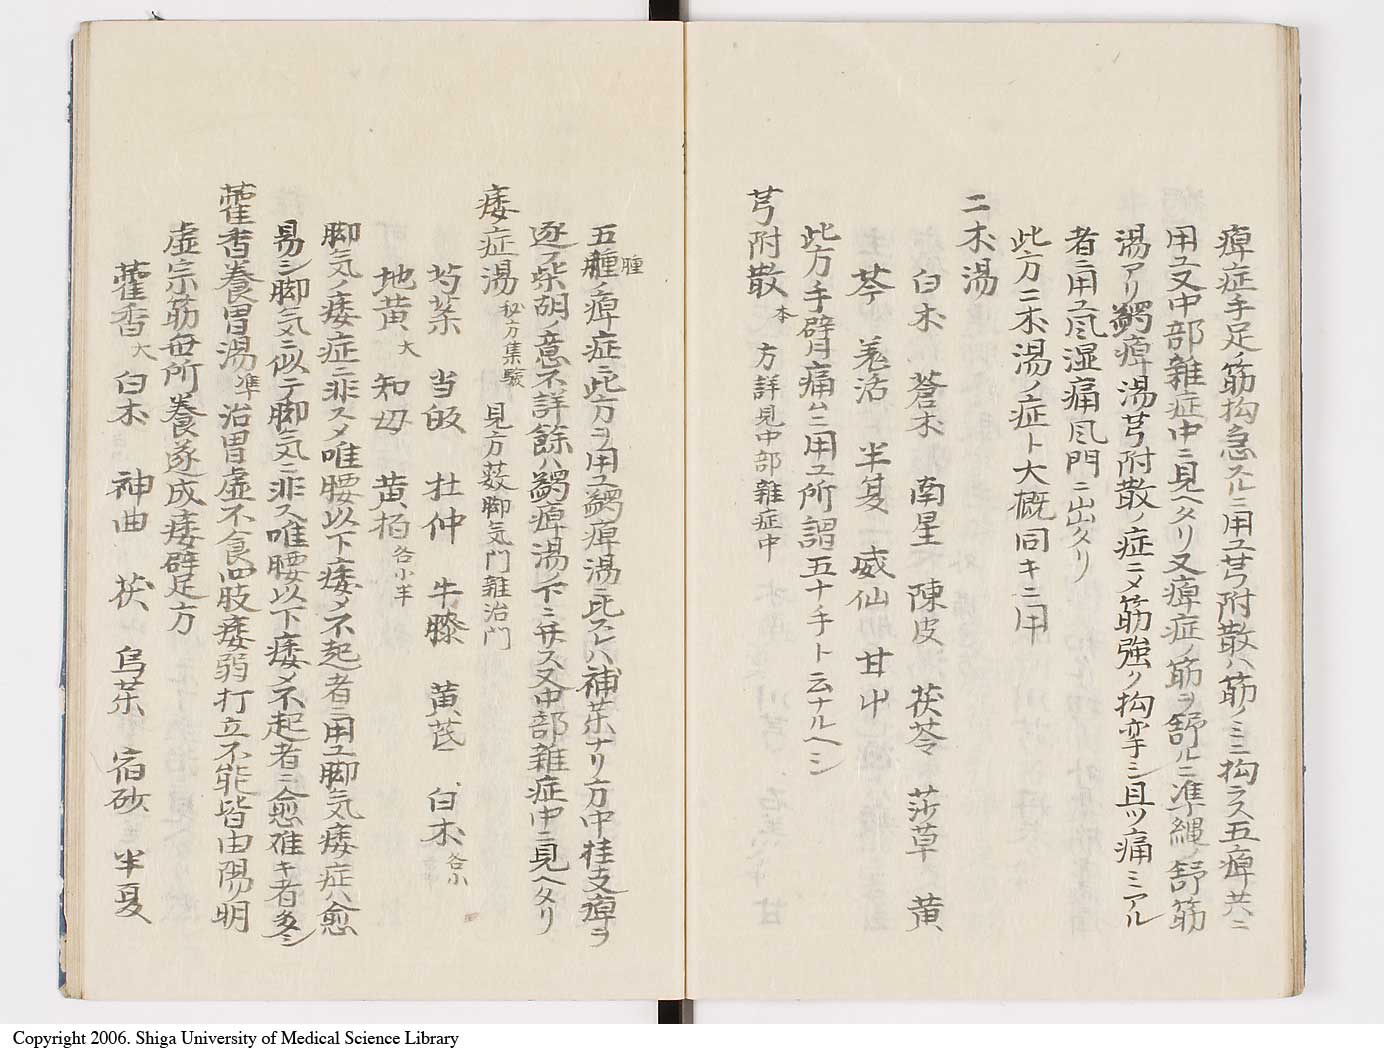 痺症手足ノ筋拘急スルニ用ユ芎附散ハ筋ノミニ拘ラス五痺共ニ
用ユ又中部雜症中ニ見ヘタリ又痺症ノ筋ヲ舒ルニ準縄ノ舒筋
湯アリ蠲痺湯芎附散ノ症ニメ筋強ク拘攣シ且ツ痛ミアル
者ニ用ユ风湿痛风門ニ出タリ
此方二朮湯ノ症ト大概同キニ用
二朮湯
白朮 蒼朮 南星 陳皮 茯苓 莎草 黄
芩 羗活 半夏 威仙 甘屮
此方手臂痛ムニ用ユ所謂五十手ト云ナルヘシ
芎附散 本 方詳見中部雜症中
五腫ノ痺症ニ此方ヲ用ユ蠲痺湯ニ比スレハ補茱ナリ方中桂支痺ヲ
腫
逐フ柴胡ノ意不詳餘ハ蠲痺湯ノ下ニ弁ス又中部雜症中ニ見ヘタリ
痿症湯 秘方集驗 見方薮脚気門雜治門
芍茱 当皈 杜仲 牛膝 黄芪 白朮 各小
地黄 大 知母 黄柏 各小半
脚気ノ痿症ニ非スメ唯腰以下痿メ不起者ニ用ユ脚気痿症ハ愈
易シ脚気ニ似テ脚気ニ非ス唯腰以下痿メ不起者ニ愈碓キ者多シ
藿香養胃湯 準 治胃虚不食四肢痿弱打立不能皆由陽明
虚宗筋毋所養遂成痿躄足方
藿香 大 白朮 神曲 茯 烏茱 宿砂 半夏